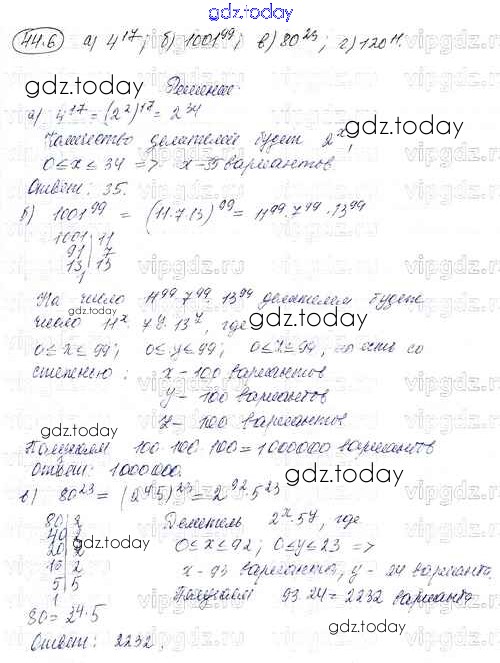 44.6 а) 4^17; б) 1001^99; в) 80^23; г) 120^11.
gdz.today
Решение:
а) 4^17 = (2^2)^17 = 2^34
Количество делителей будет 2^x,
gdz.today
0≤x≤34 => x-35 вариантов
Ответ: 35.
б) 1001^99 = (11·7·13)^99 = 11^99·7^99·13^99
1001 | 11
91 | 7
13 | 13
1
На число 11^99·7^99·13^99 делителем будет
число 11^x·7^y·13^z, где
gdz.today
0≤x≤99; 0≤y≤99; 0≤z≤99, то есть со
степенью: x - 100 вариантов
y - 100 вариантов
z - 100 вариантов
gdz.today
Получаем 100·100·100=1000000 вариантов
Ответ: 1000000.
gdz.today
в) 80^23 = (2^4·5)^23 = 2^92·5^23
80 | 2
40 | 2
20 | 2
10 | 2
5 | 5
1
Делитель 2^x·5^y, где
0≤x≤92; 0≤y≤23 =>
x-93 варианта, y-24 варианта
Получаем 93·24=2232 варианта
80=2^4·5
gdz.today
Ответ: 2232.
vipgdz.ru